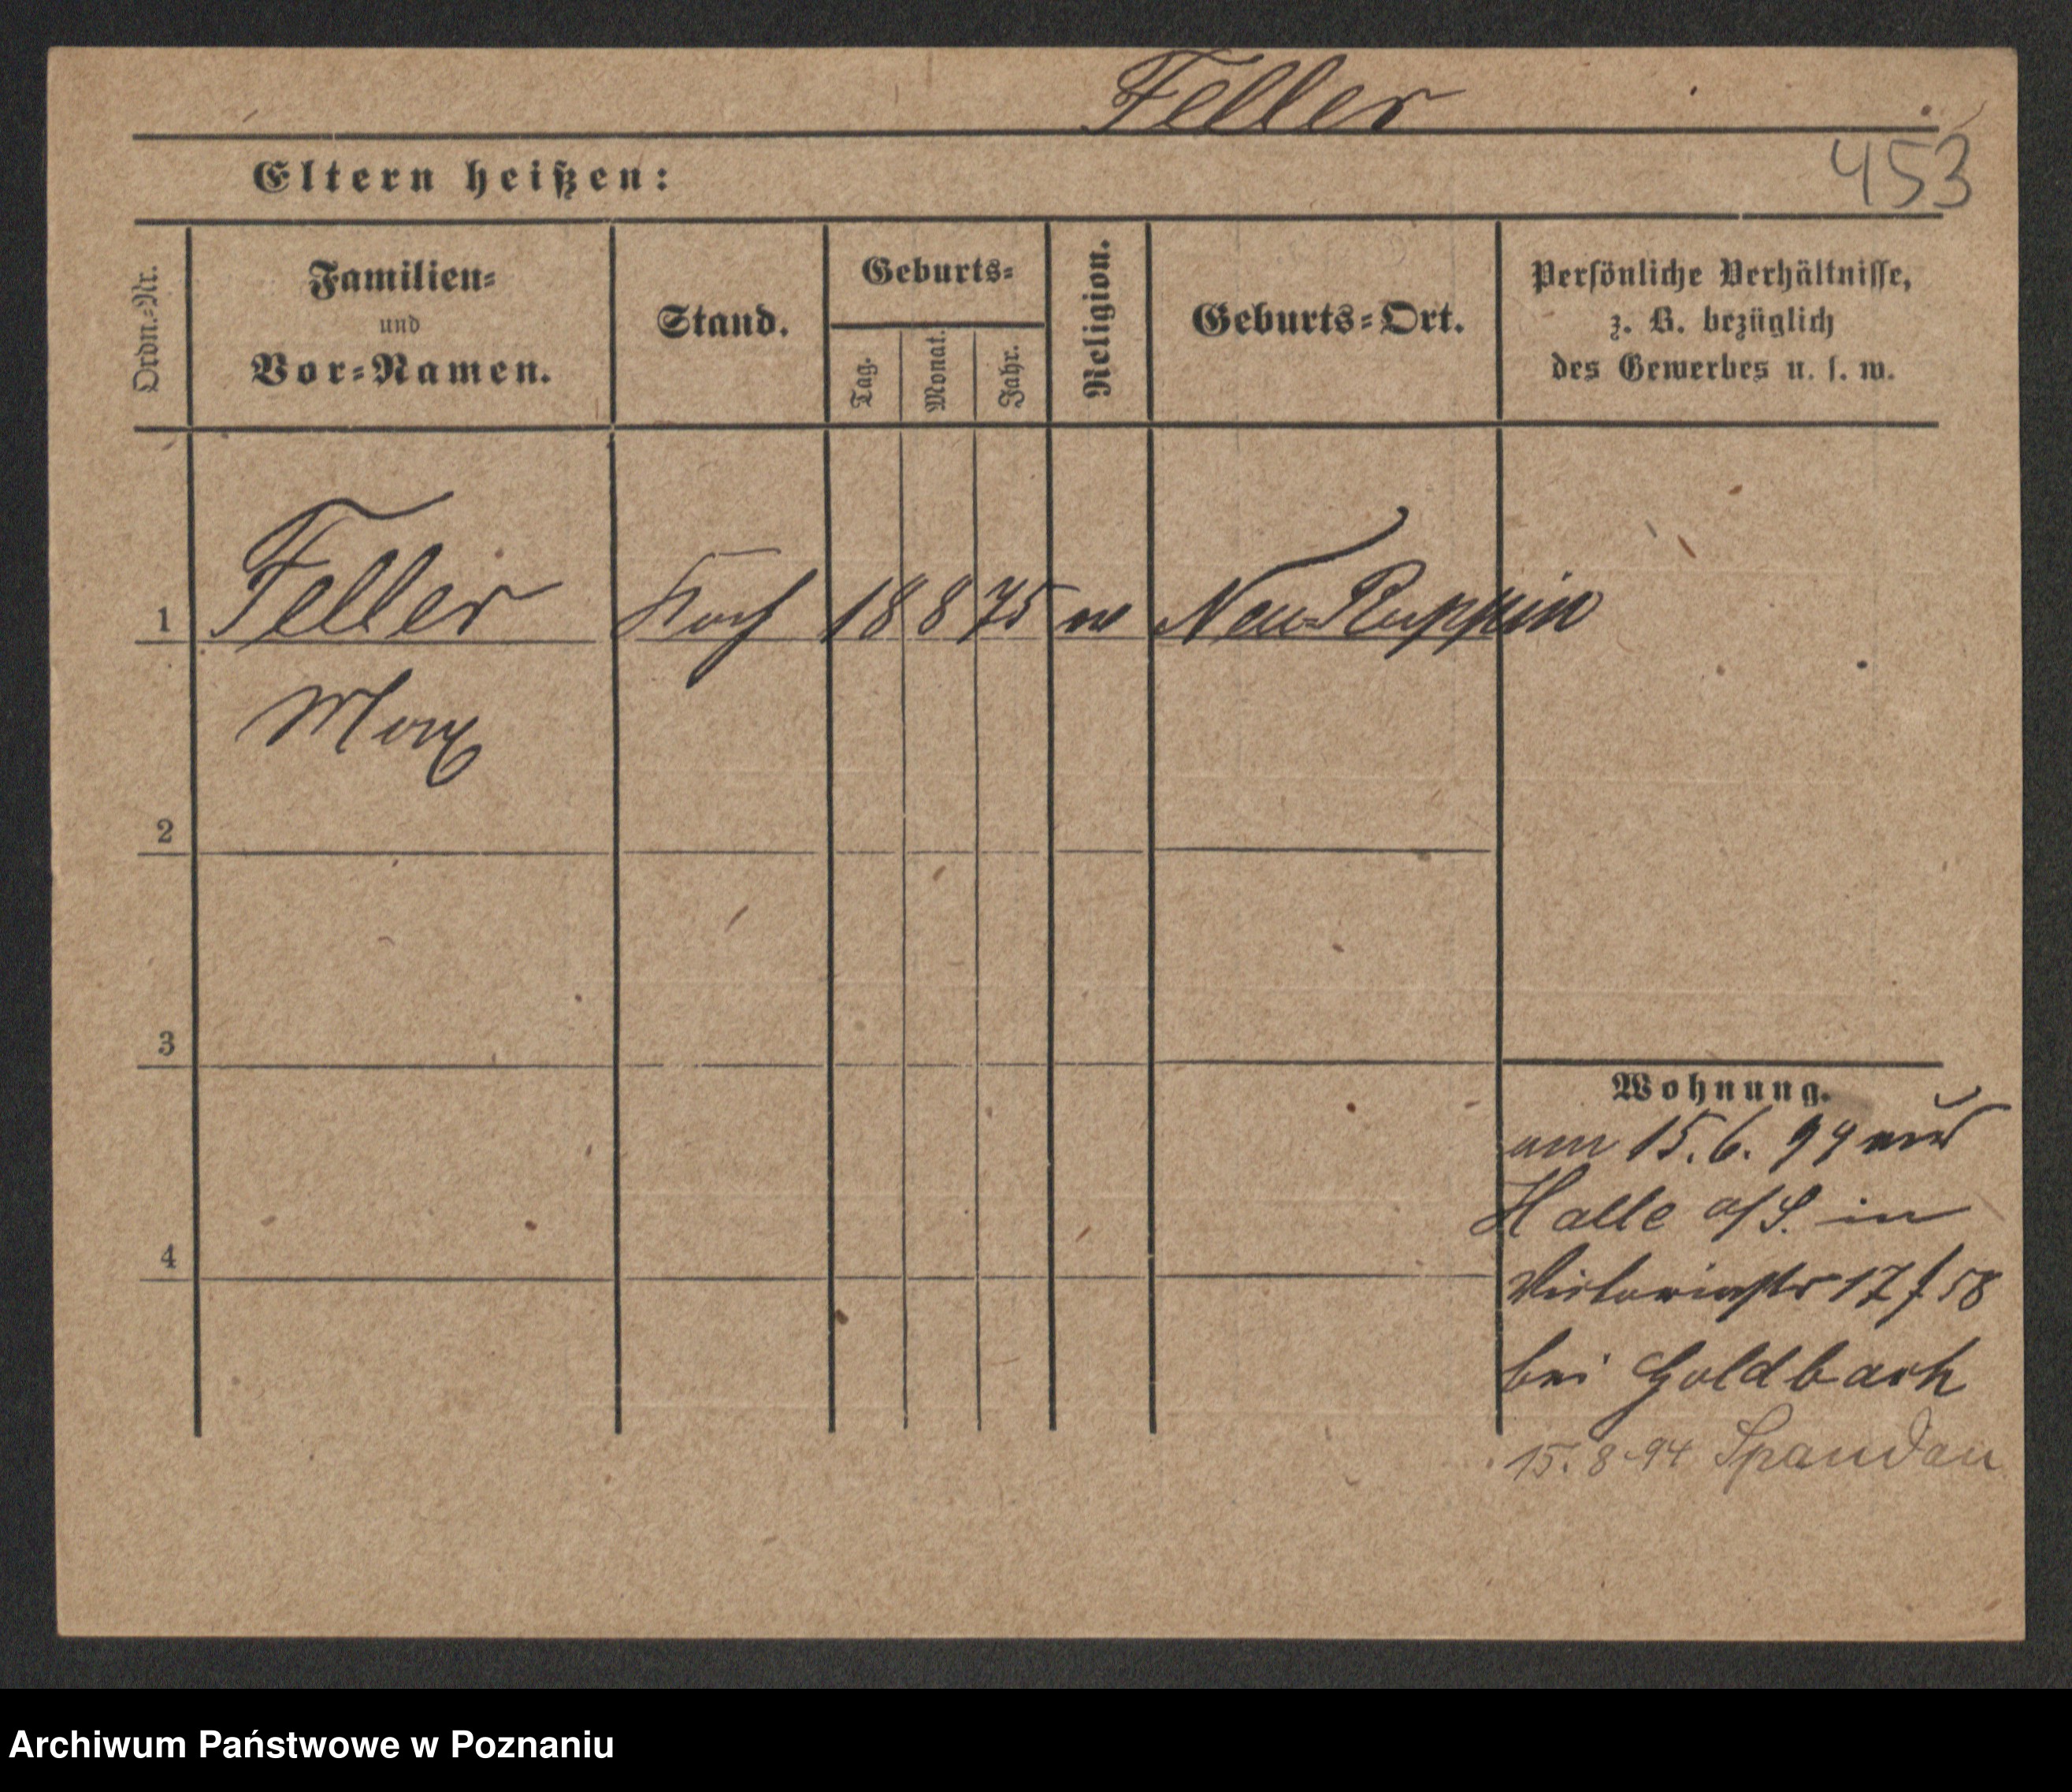 Feller
453
Eltern heißen:
Ordn.-Nr.
Familien-
und
Vor-Namen.
Stand.
Geburts-
Tag.
Monat.
Jahr.
Religion.
Geburts-Ort.
Persönliche Verhältnisse,
z. B. bezüglich
des Gewerbes u. s. w.
1 Feller Koch 18 8 75 Neu-Ruppin
Max
2
3
4
Wohnung.
am 15. 6. 94 aus
Halle a/S. in
Victoriastr 17 f 58
bei Goldbach
15. 8 94 Spandau
Archiwum Państwowe w Poznaniu